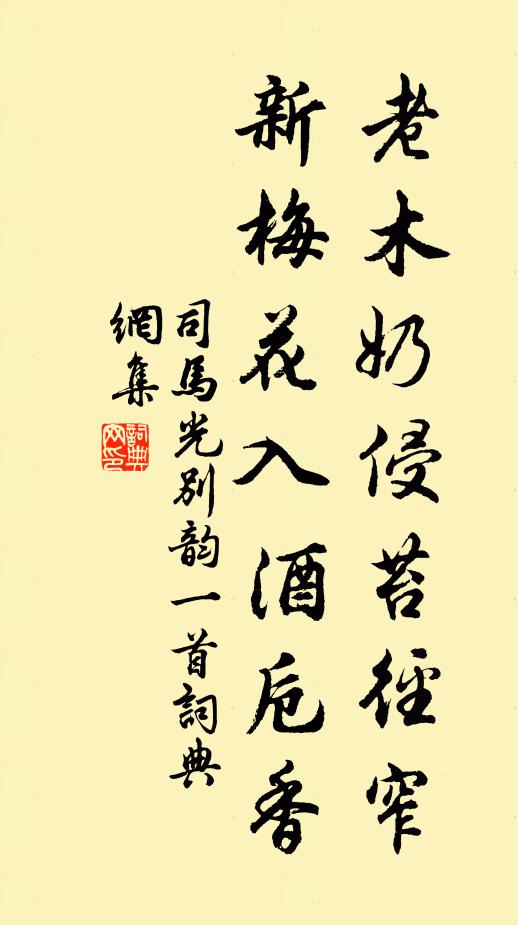 老木奶侵苔徑窄
新梅花入酒卮香
司馬光別韵一首詞典
網集
詞典
网印